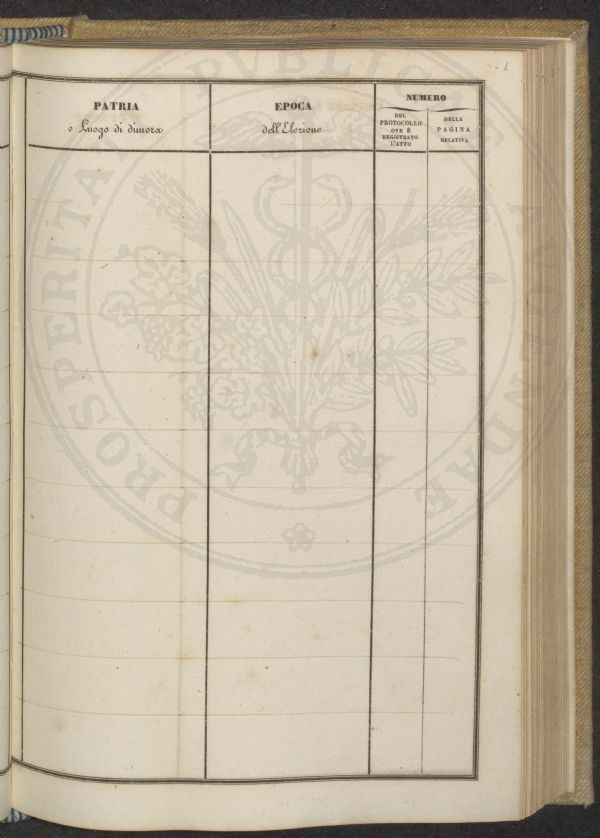 1
PATRIA
o Luogo di dimora
EPOCA
dell'Elezione
NUMERO
DEL
PROTOCOLLO
OVE È
REGISTRATO
L'ATTO
DELLA
PAGINA
RELATIVA
PROSPERITATI PUBLICAE AUGENDAE